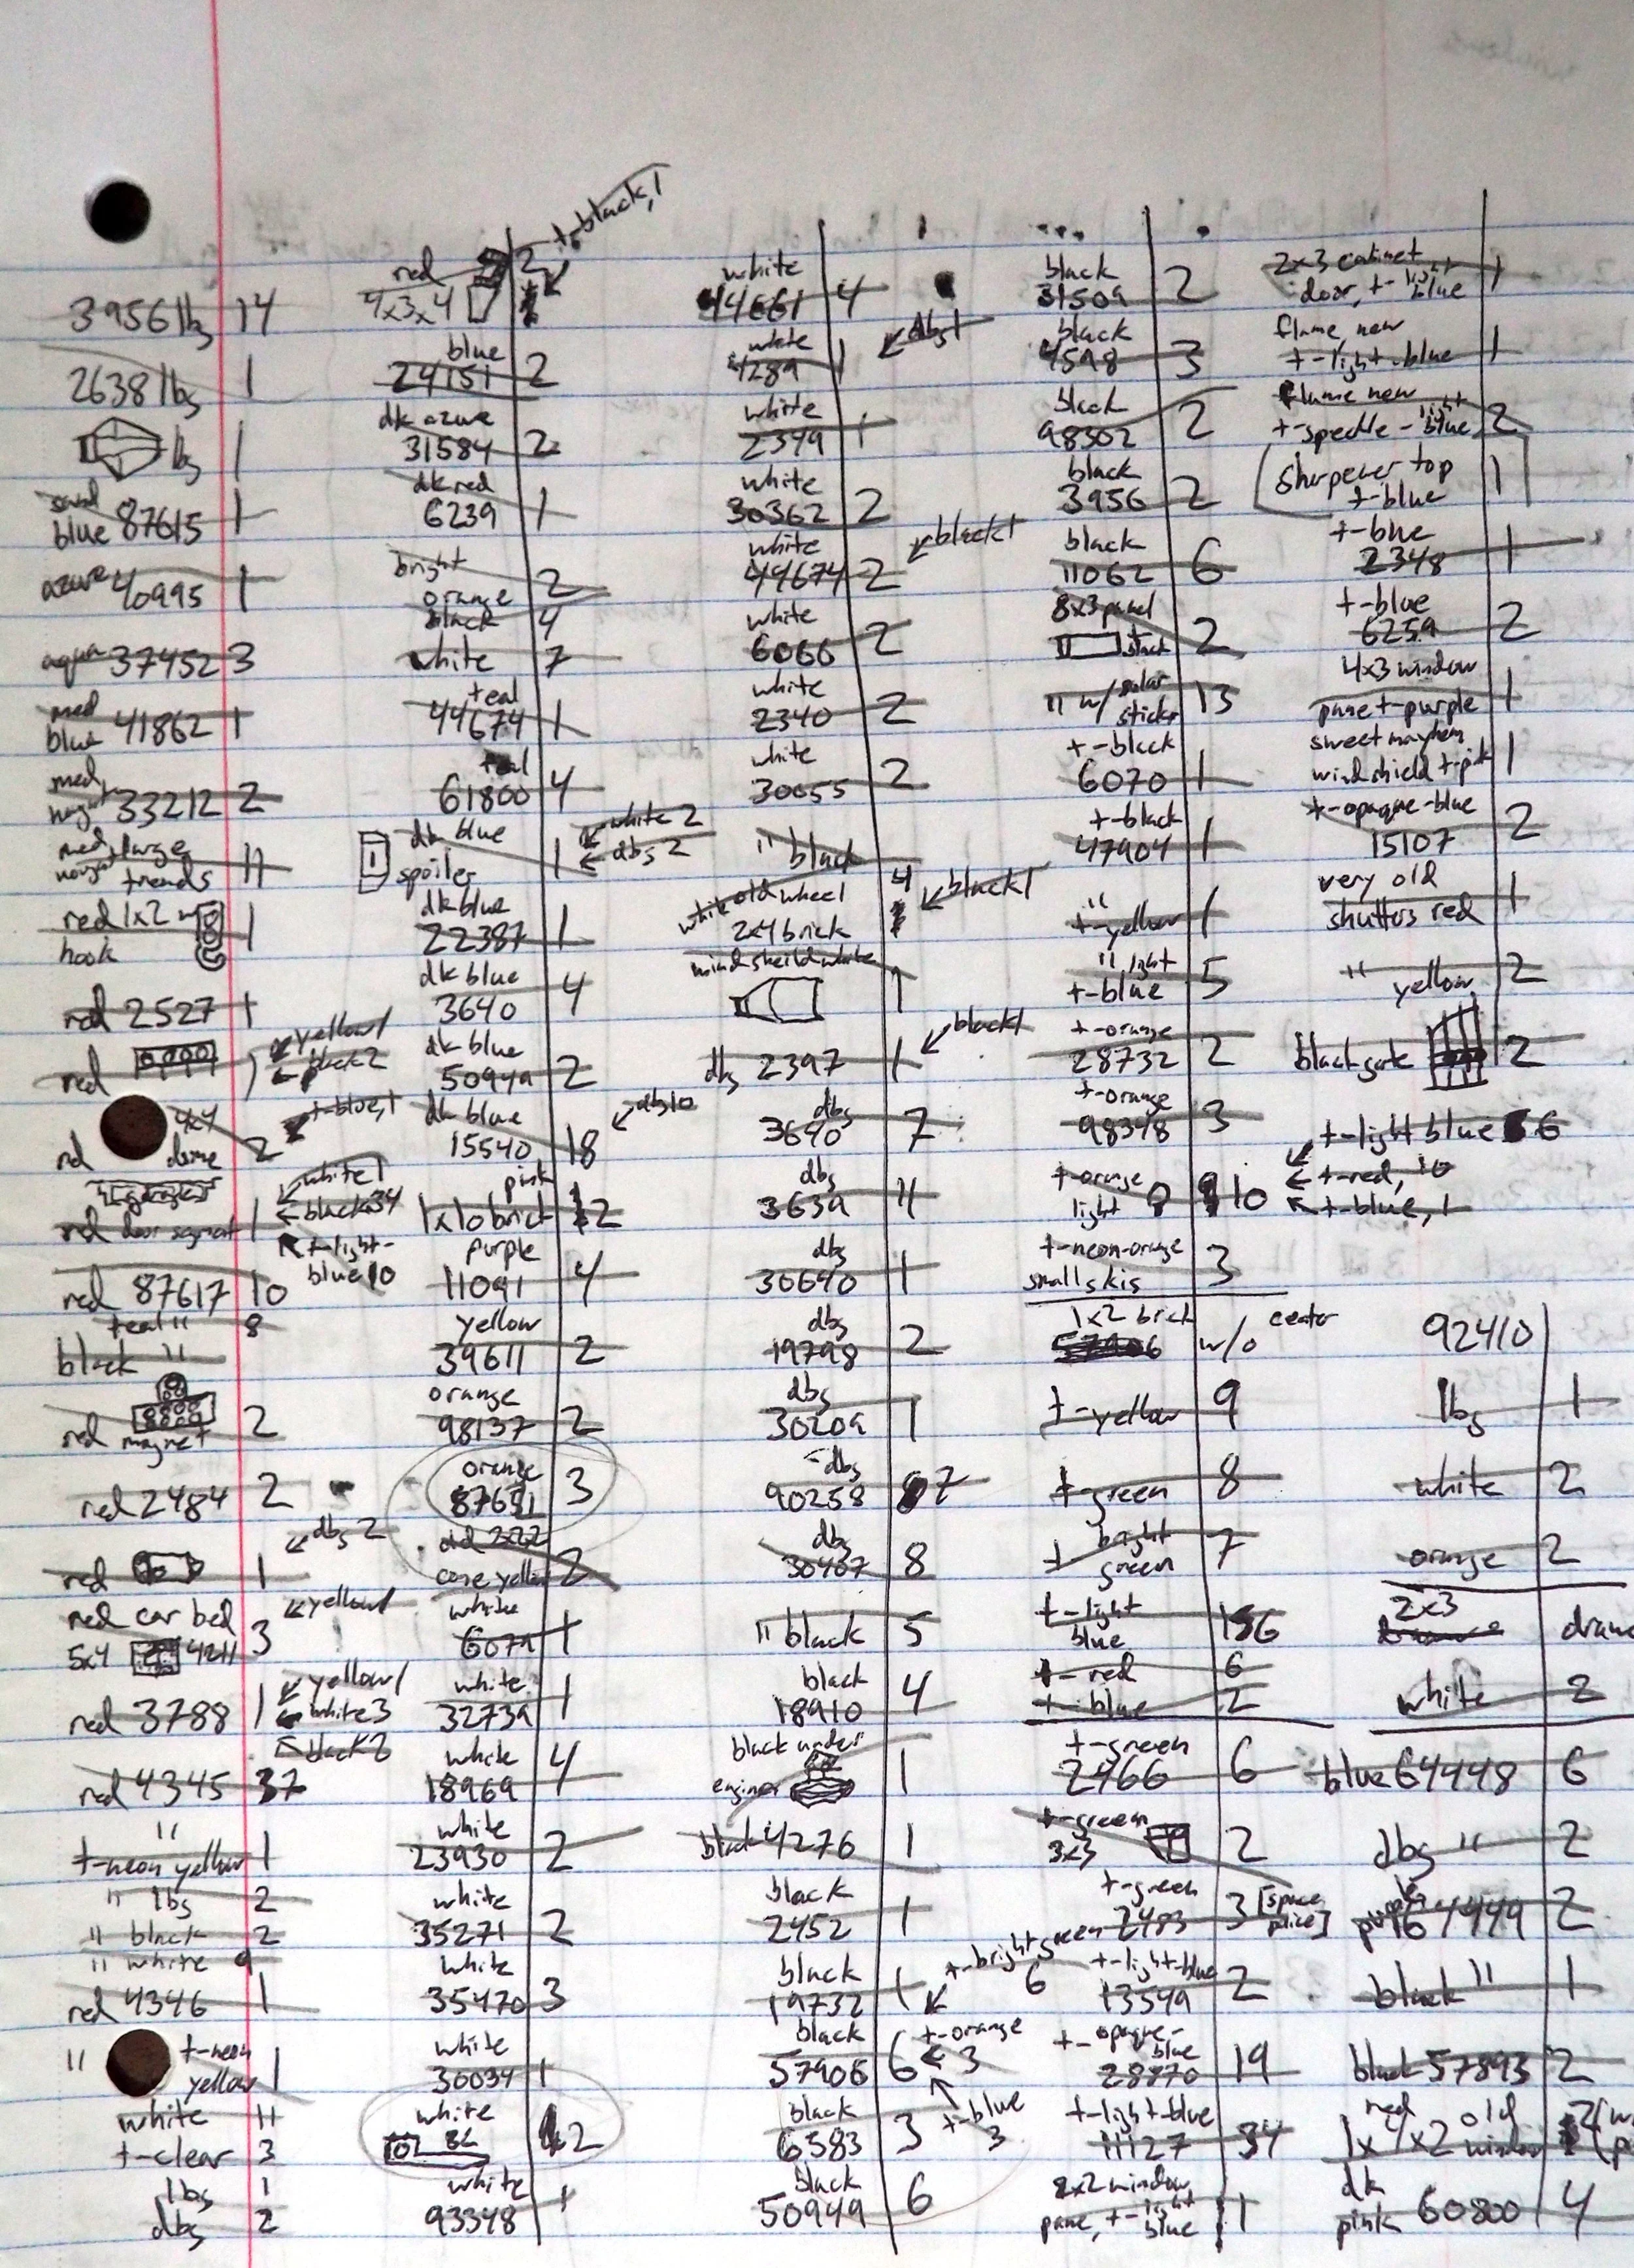 3956 lbg 14
2638 lbg 1
lbg 1
sand
blue 87615 1
azure 40995 1
aqua 37452 3
med
blue 41862 1
med
nougat 33212 2
med large
nougat treads 11
red 1x2 w/
hook 1
red 2527 1
yellow 1
black 2
red 1
4x4
red dome 2
t-blue, 1
white 1
red door segment 1
black 34
t-light-
blue 10
red 87617 10
teal " 8
black "
red magnet 2
red 2484 2
dbg 2
red 1
red car bed
5x4 4211 3
yellow 1
red 3788 1
yellow 1
white 3
black 2
red 4345 37
"
t-neon yellow 1
" lbg 2
" black 2
" white 9
red 4346 1
" t-neon
yellow 1
white 11
t-clear 3
lbg 1
dbg 2
red 2
4x3x4
t-black, 1
blue
24151 2
dk azure
31584 2
dk red
6239 1
bright
orange 2
black 4
white 7
teal
44674 1
teal
61800 4
dk blue
spoiler 1
white 2
dbg 2
dk blue
22387 1
dk blue
3640 4
dk blue
50949 2
dk blue
15540 18
dbg 10
pink
1x10 brick 12
purple
11091 4
yellow
39611 2
orange
98137 2
orange
87691 3
old 2x2x2
cone yellow 2
white
6079 1
white
32739 1
white
18969 4
white
23930 2
white
35271 2
white
35470 3
white
30034 1
white
2
white
93348 1
white
44661 4
white
4289 1
dbg 1
white
2349 1
white
30362 2
white
44674 2
black 1
white
6066 2
white
2340 2
white
30055 2
" black
4
white old wheel
2x4 brick
black 1
windsheild white
1
dbg 2397 1
black 1
dbg
3640 7
dbg
3639 11
dbg
30640 1
dbg
19798 2
dbg
30209 1
dbg
90258 7
dbg
30407 8
" black 5
black
18910 4
black under
engine 1
black 4276 1
black
2452 1
black
19732 1
t-bright green
6
black
57906 6
t-orange
3
t-blue
3
black
6583 3
black
50949 6
black
31509 2
black
4598 3
black
98302 2
black
3956 2
black
11062 6
8x3 panel
black 2
" w/ solar
sticker 13
t-black
6070 1
t-black
47904 1
"
t-yellow 1
" light
t-blue 5
t-orange
28732 2
t-orange
98348 3
t-orange
light 10
t-light blue 6
t-red, 10
t-blue, 1
t-neon-orange
small skis 3
1x2 brick
w/o center
t-yellow 9
t-green 8
t-bright
green 7
t-light
blue 156
t-red 6
t-blue 2
t-green
2466 6
t-green
3x3 2
t-green
2483 3 [space
police]
t-light-blue
13549 2
t-opaque-
blue
28870 19
t-light-blue
11127 34
2x2 window
pane, t-light
blue 1
2x3 cabinet
door, t-light
blue 1
flame new
t-light-blue 1
flame new
t-speckle-light
blue 2
sharpener top
t-blue 1
t-blue
2348 1
t-blue
6259 2
4x3 window
pane t-purple 1
sweet mayhem
windshield t-pink 1
t-opaque-blue
15107 2
very old
shutters red 1
" yellow 2
black gate 2
92410
lbg 1
white 2
orange 2
2x3
white 2
blue 64448 6
dbg " 2
purple 64449 2
black " 1
black 57893 2
red
1x4x2 old
window
dk
pink 60800 4